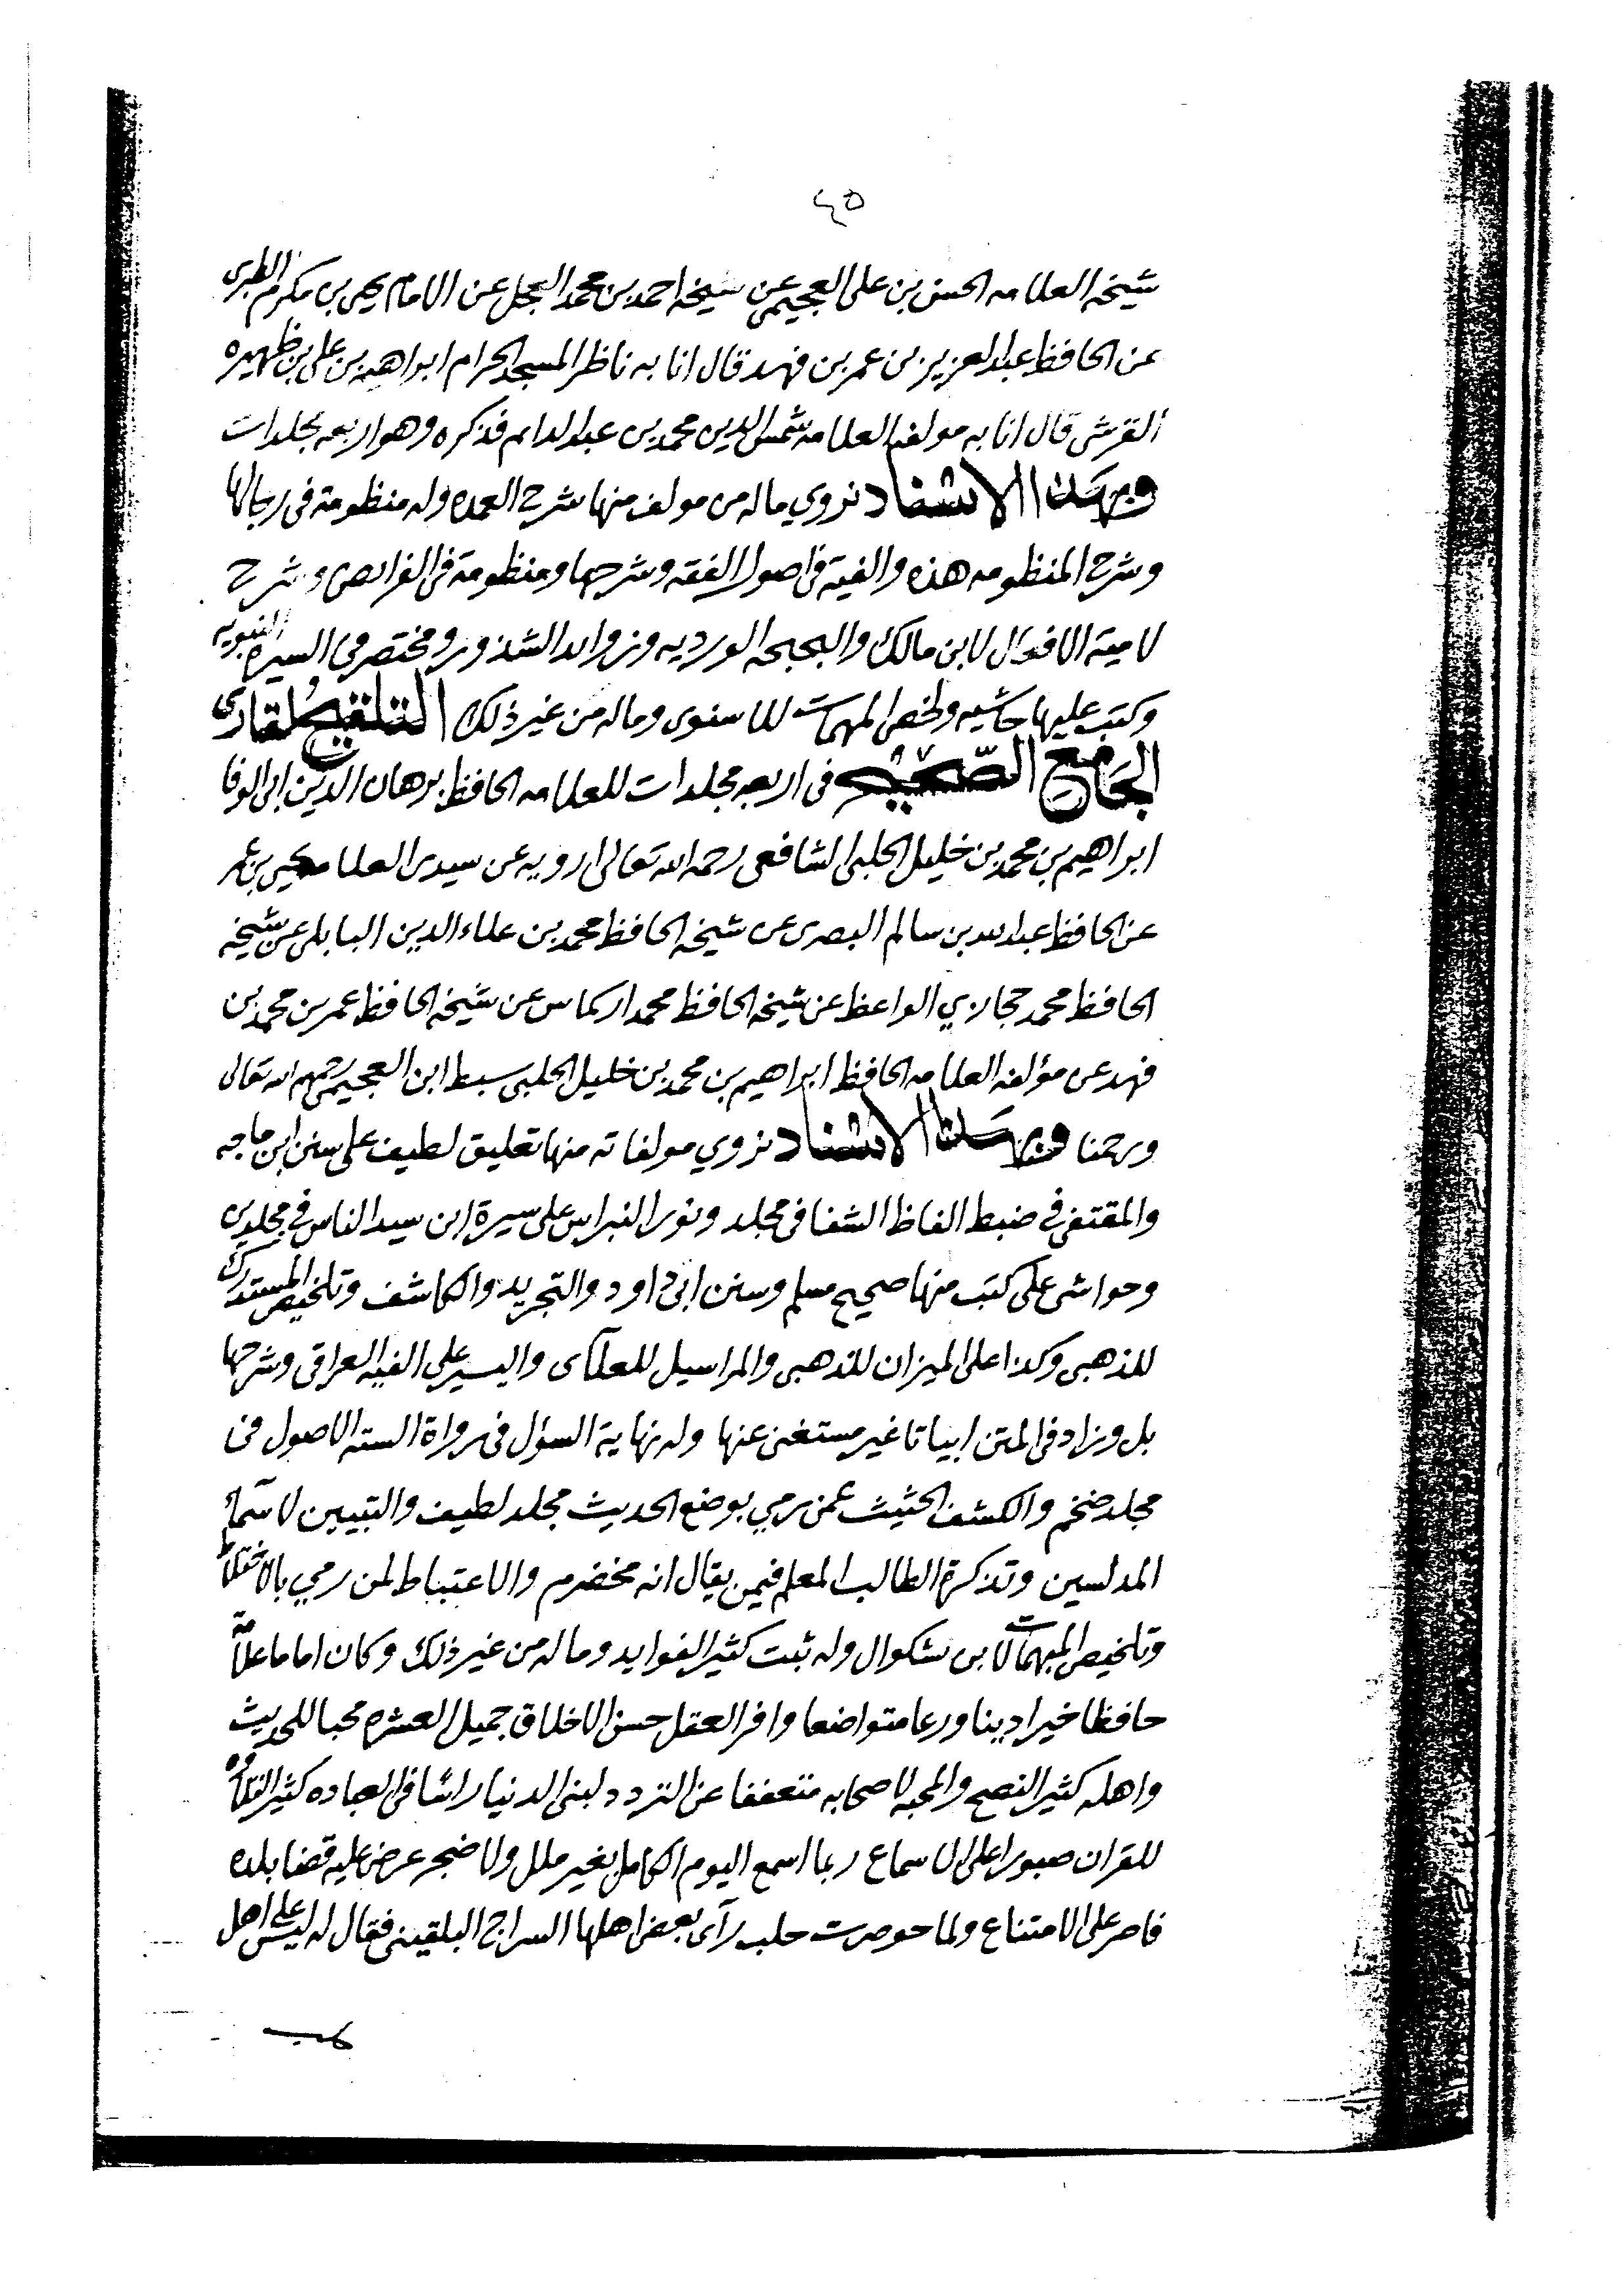 ٤٥
شيخه العلامه الحسن بن على العجيمي عن شيخه احمد بن محمد العجل عن الامام يحيى بن مكرم الطبرى
عن الحافظ عبد العزيز بن عمر بن فهد قال انا به ناظر المسجد الحرام ابراهيم بن على بن ظهيره
القرشى قال انا به مولفه العلامه شمس الدين محمد بن عبد الدايم فذكره وهو اربعه مجلدات
وبهذا الاسناد نروي ماله من مولف منها شرح العمده وله منظومة فى رجالها
وشرح المنظومه هذه والفية فى اصول الفقه وشرحها ومنظومة فى الفرايض وشرح
لامية الافعال لابن مالك والبهجه الورديه وزوايد الشذور ومختصر فى السيرة النبويه
وكتب عليها حاشيه ولخص المهمات للاسنوى وماله من غير ذلك التلقيح لقارى
الجامع الصحيح فى اربعه مجلدات للعلامه الحافظ برهان الدين ابى الوفا
ابراهيم بن محمد بن خليل الحلبى الشافعى رحمه الله تعالى ارويه عن سيدى العلامه يحيى بن عمر
عن الحافظ عبد الله بن سالم البصرى عن شيخه الحافظ محمد بن علاء الدين البابلى عن شيخه
الحافظ محمد حجازي الواعظ عن شيخه الحافظ محمد اركماس عن شيخه الحافظ عمر بن محمد بن
فهد عن مؤلفه العلامه الحافظ ابراهيم بن محمد بن خليل الحلبى سبط ابن العجمي رحمهم الله تعالى
ورحمنا وبهذا الاسناد نروي مولفاته منها تعليق لطيف على سنن ابن ماجه
والمقتفى في ضبط الفاظ الشفا فى مجلد ونور النبراس على سيرة ابن سيد الناس في مجلدين
وحواشى على كتب منها صحيح مسلم وسنن ابى داود والتجريد والكاشف وتلخيص المستدرك
للذهبى وكذا على الميزان للذهبى والمراسيل للعلآى واليسير على الفية العراقى وشرحها
بل وزاد فى المتن ابياتا غير مستغنى عنها وله نهاية السؤل فى رواة الستة الاصول فى
مجلد ضخم والكشف الحثيث عمن رمي بوضع الحديث مجلد لطيف والتبيين لاسماء
المدلسين وتذكرة الطالب المعلم فيمن يقال انه مخضرم والاعتباط لمن رمي بالاختلاط
وتلخيص المبهمات لابن بشكوال وله ثبت كثير الفوايد وماله من غير ذلك وكان اماما علامة
حافظا خيرا دينا ورعا متواضعا وافر العقل حسن الاخلاق جميل العشره محبا للحديث
واهله كثير النصح والمحبه لاصحابه متعففا عن التردد لبنى الدنيا راسًا فى العباده كثير التلاوه
للقران صبورا على الاسماع ربما اسمع اليوم الكامل بغير ملل ولا ضجر عرض عليه قضا بلده
فاصر على الامتناع ولما حوصرت حلب رآى بعض اهلها السراج البلقينى فقال له ليس على اهل